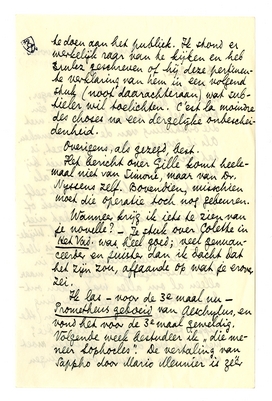 te doen aan het publiek. Ik stond er
werkelijk raar van te kijken en heb
Sruti geschreven of hij deze
verklaring van hem in een volgend
stuk (nooit daarachteraan) wat sub-
tieler wil toelichten. C'est la moindre
des choses na een dergelijke onbeschei-
denheid.
Overigens, als gezegd, best.
Het bericht over Gille komt heele-
maal niet van Simone, maar van Dr.
Nyssens zelf. Bovendien, misschien
moet die operatie toch nog gebeuren.
Wanneer krijg ik iets te zien van
je novelle? – Je stuk over Colette in
Het Vad. was heel goed; veel genuan-
ceerder en juister dan ik dacht dat
het zijn zou, afgaande op wat je erover
zei.
Ik las – voor de 3e maal nu –
Prometheus geboeid van Aeschylus, en
vond het voor de 3e maal geweldig.
Volgende week bestudeer ik "die me-
neer Sophocles". De vertaling van
Sappho door Mario Meunier is zéér